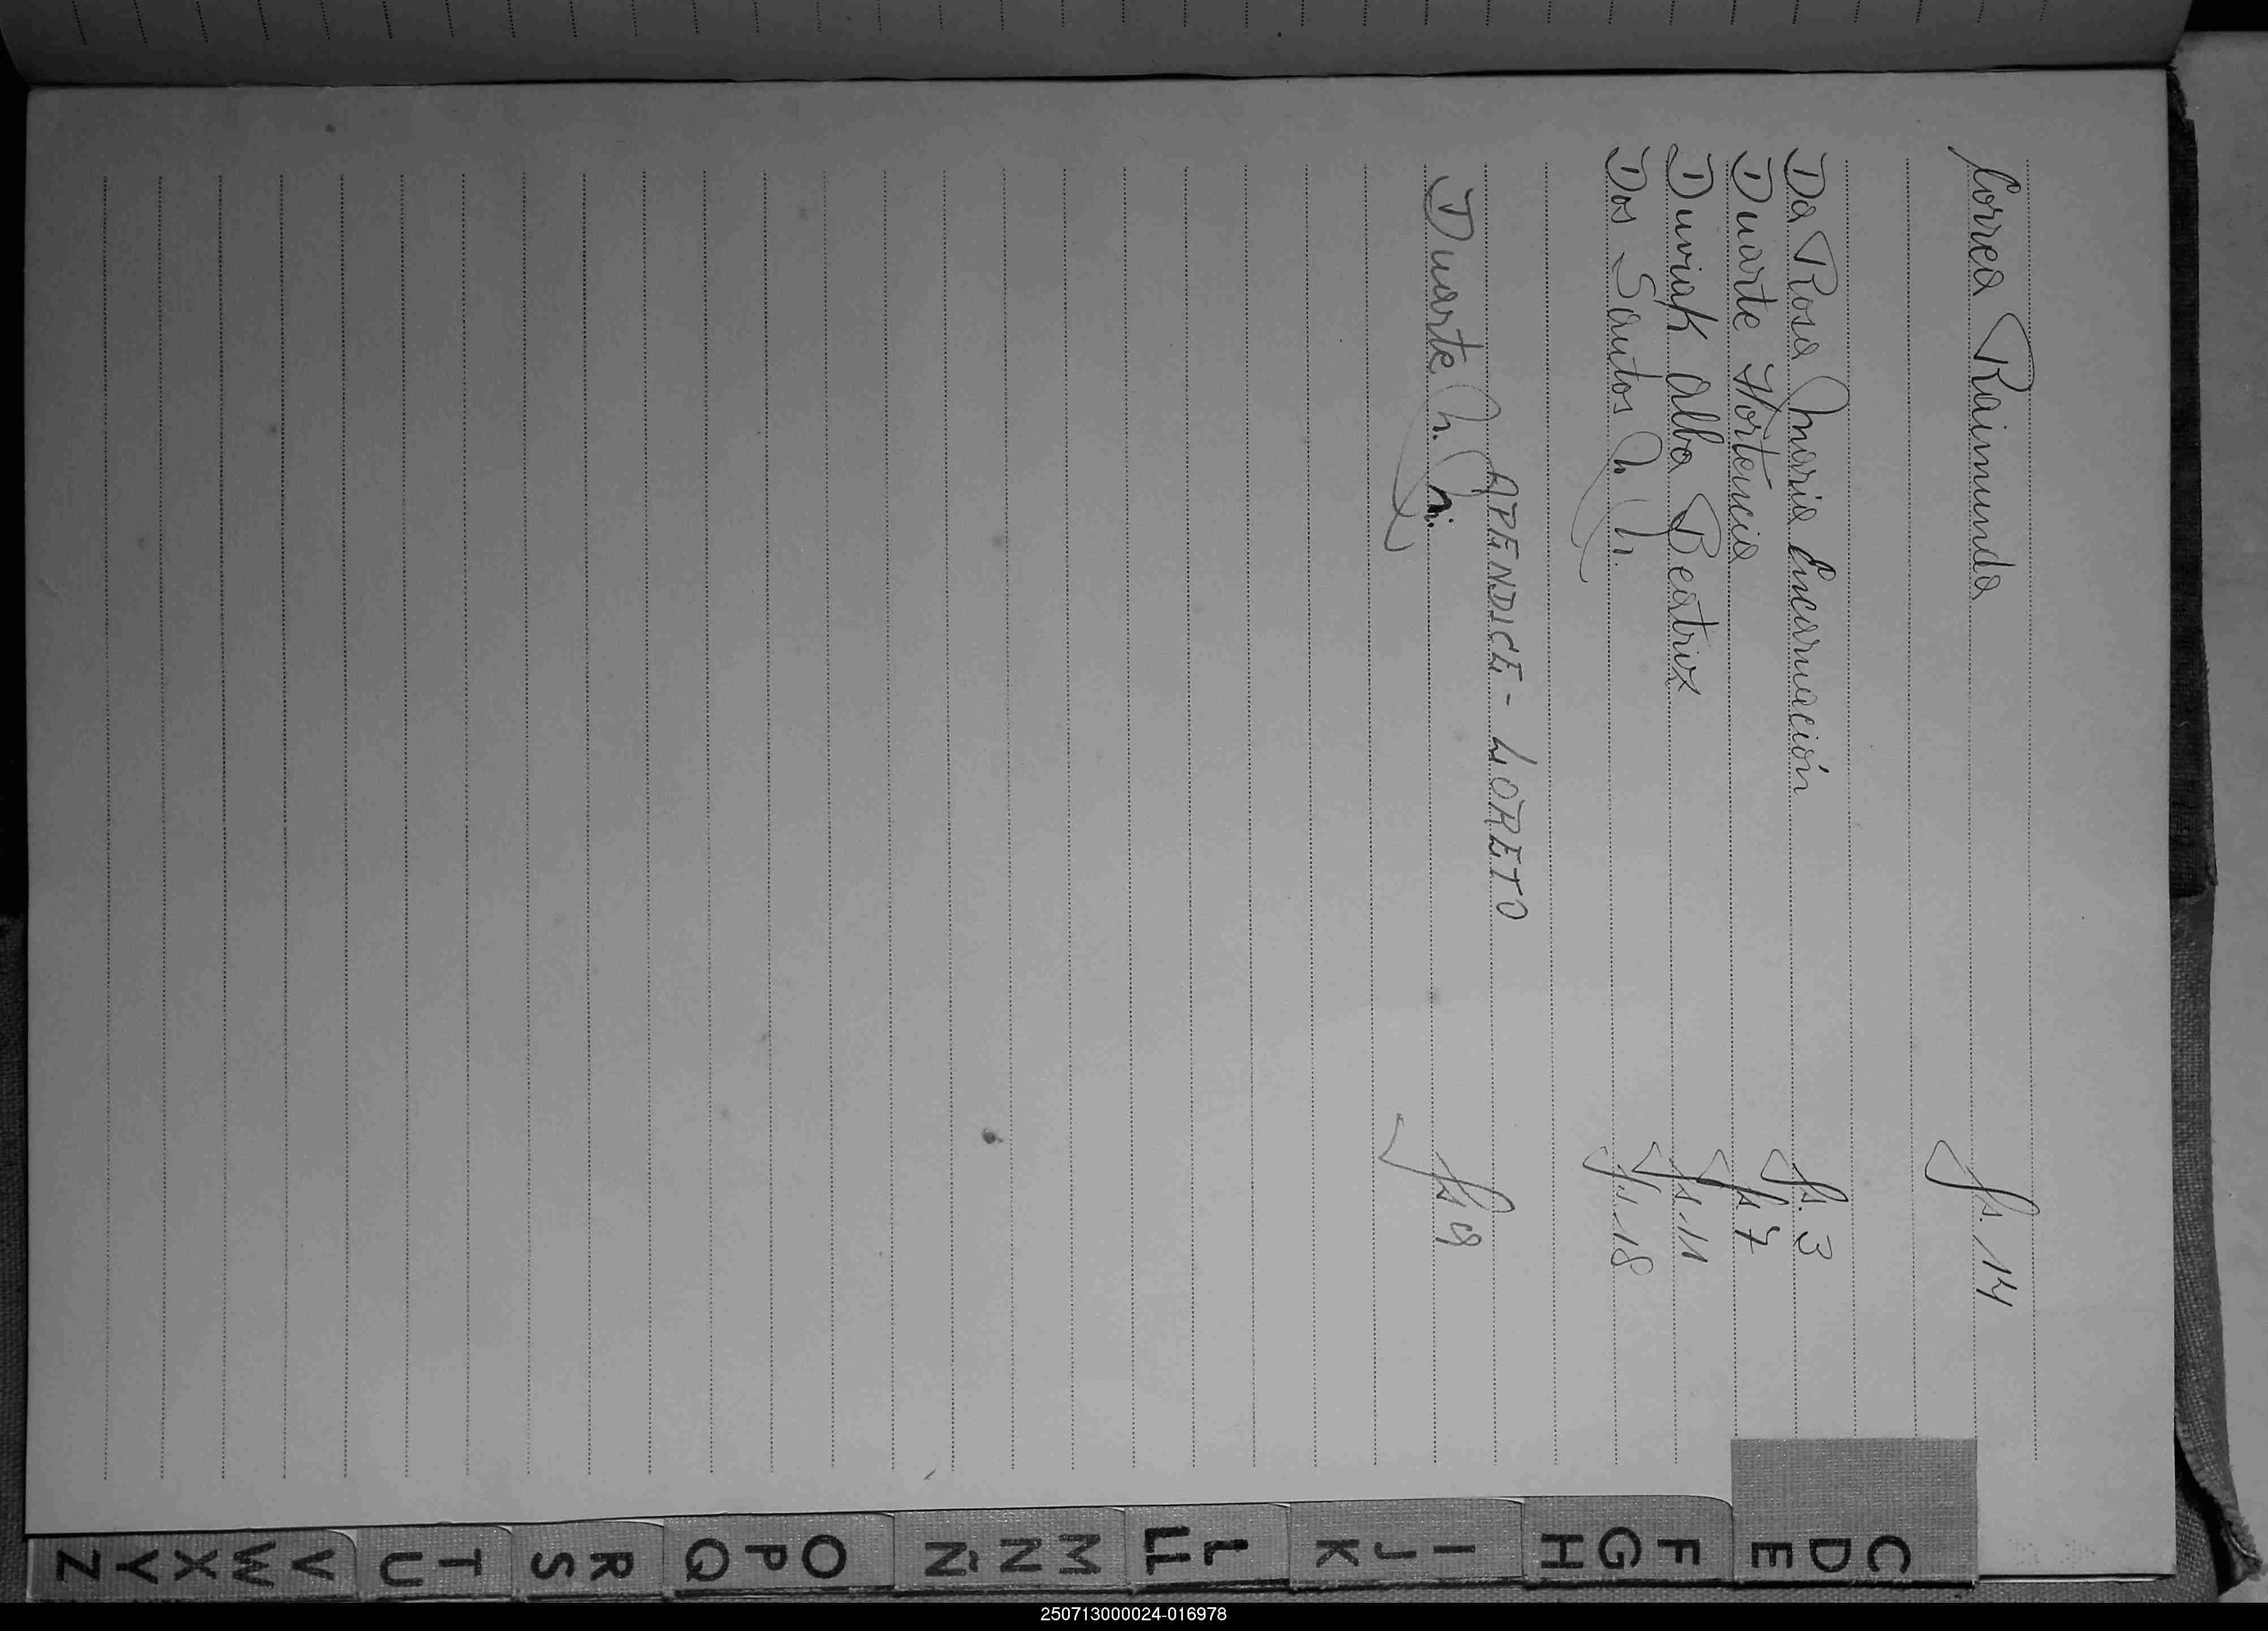 Correa Raimundo fs. 14
Da Rosa Maria Encarnación fs. 3
Duarte Hortencia fs. 7
Duviak Alba Beatriz fs. 11
Dos Santos N. N. fs. 18
APENDICE - LORETO
Duarte N. N. fs 19
C D E
F G H
I J K
L LL
M N Ñ
O P Q
R S
T U
V W X Y Z
250713000024-016978